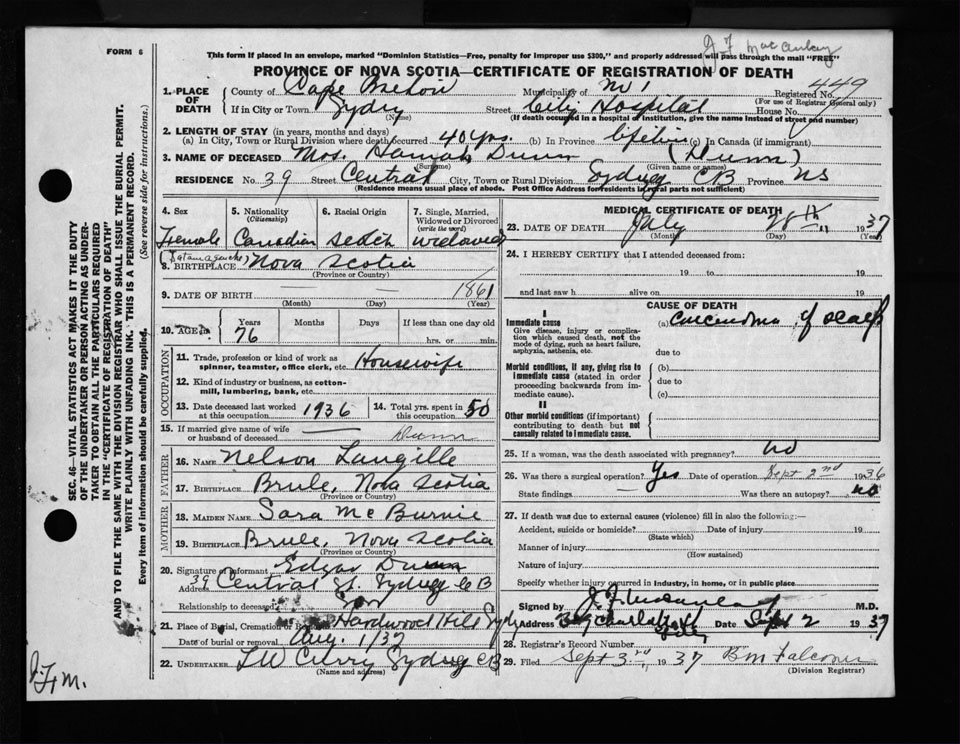 J. F. MacAulay
FORM 6
This form if placed in an envelope, marked "Dominion Statistics—Free, penalty for improper use $300," and properly addressed will pass through the mail "FREE"
PROVINCE OF NOVA SCOTIA—CERTIFICATE OF REGISTRATION OF DEATH
SEC. 46—VITAL STATISTICS ACT MAKES IT THE DUTY OF THE UNDERTAKER OR PERSON ACTING AS UNDERTAKER TO OBTAIN ALL THE PARTICULARS REQUIRED IN THE "CERTIFICATE OF REGISTRATION OF DEATH"
AND TO FILE THE SAME WITH THE DIVISION REGISTRAR WHO SHALL ISSUE THE BURIAL PERMIT.
WRITE PLAINLY WITH UNFADING INK. THIS IS A PERMANENT RECORD.
Every item of information should be carefully supplied. (See reverse side for instructions.)
1. PLACE OF DEATH County of Cape Breton Municipality of No 1 Registered No. 449
(For use of Registrar General only)
If in City or Town Sydney Street City Hospital House No.
(Name) (If death occurred in a hospital or institution, give the name instead of street and number)
2. LENGTH OF STAY (in years, months and days)
(a) In City, Town or Rural Division where death occurred 40 yrs. (b) In Province lifetime (c) In Canada (if immigrant)
3. NAME OF DECEASED Mrs. Hannah Dunn (Dunn)
(Surname) (Given name or names)
RESIDENCE No. 39 Street Central City, Town or Rural Division Sydney CB Province NS
(Residence means usual place of abode. Post Office Address for residents in rural parts not sufficient)
4. Sex Female
5. Nationality (Citizenship) Canadian
6. Racial Origin Scotch
7. Single, Married, Widowed or Divorced (write the word) widowed
(Tatamagouche)
8. BIRTHPLACE Nova Scotia
(Province or Country)
9. DATE OF BIRTH — — 1861
(Month) (Day) (Year)
10. AGE in Years 76 Months Days If less than one day hrs. or min.
OCCUPATION
11. Trade, profession or kind of work as spinner, teamster, office clerk, etc. Housewife
12. Kind of industry or business, as cotton-mill, lumbering, bank, etc.
13. Date deceased last worked at this occupation 1936
14. Total yrs. spent in this occupation 50
15. If married give name of wife or husband of deceased — Dunn
FATHER
16. NAME Nelson Langille
17. BIRTHPLACE Brule, Nova Scotia
(Province or Country)
MOTHER
18. MAIDEN NAME Sara McBurnie
19. BIRTHPLACE Brule, Nova Scotia
(Province or Country)
20. Signature of informant Edgar Dunn
Address 39 Central St. Sydney CB
Relationship to deceased Son
21. Place of Burial, Cremation or Removal Hardwood Hill Sydney
Date of burial or removal Aug. 1/37
22. UNDERTAKER TW Curry Sydney CB
(Name and address)
J.F.M.
MEDICAL CERTIFICATE OF DEATH
23. DATE OF DEATH July 28th 1937
(Month) (Day) (Year)
24. I HEREBY CERTIFY that I attended deceased from:
19 to 19
and last saw h alive on 19
CAUSE OF DEATH
I
Immediate cause
Give disease, injury or complication which caused death, not the mode of dying, such as heart failure, asphyxia, asthenia, etc.
(a) Carcinoma of scalp
due to
Morbid conditions, if any, giving rise to immediate cause (stated in order proceeding backwards from immediate cause).
(b)
due to
(c)
II
Other morbid conditions (if important) contributing to death but not causally related to immediate cause.
25. If a woman, was the death associated with pregnancy? No
26. Was there a surgical operation? Yes Date of operation Sept 2nd 1936
State findings — Was there an autopsy? no
27. If death was due to external causes (violence) fill in also the following:—
Accident, suicide or homicide? Date of injury 19
(State which)
Manner of injury
(How sustained)
Nature of injury
Specify whether injury occurred in industry, in home, or in public place
Signed by J. F. MacAulay M.D.
Address Charlotte St Sydney Date Sept 2 1937
28. Registrar's Record Number
29. Filed Sept 3rd, 1937 B M Falconer
(Division Registrar)